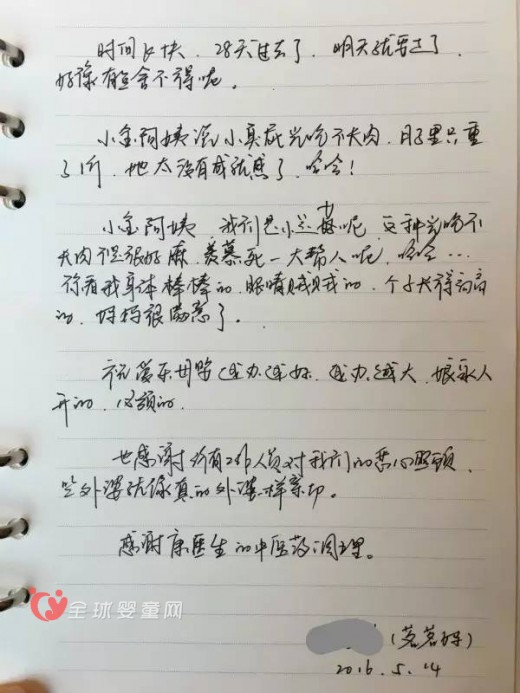 时间好快，28天过去了，明天就要走了，
好像有些舍不得呢。
小金阿姨说小真屁光吃不长肉，月子里只重
了1斤，她太没有成就感了，哈哈！
小金阿姨，我们是小 呢，这种光吃不
长肉不是很好嘛，羡慕死一大帮人呢，哈哈…
你看我身体棒棒的，眼睛贼贼的，个子长得高高
的，妈妈很满意了。
祝爱乐母婴越办越好，越办越大，
开的，必须的。
也感谢所有工作人员对我们的悉心照顾，
外婆就像真的外婆一样亲切。
感谢康医生的中医药调理。
(茗茗妈)
2016.5.14
全球婴童网